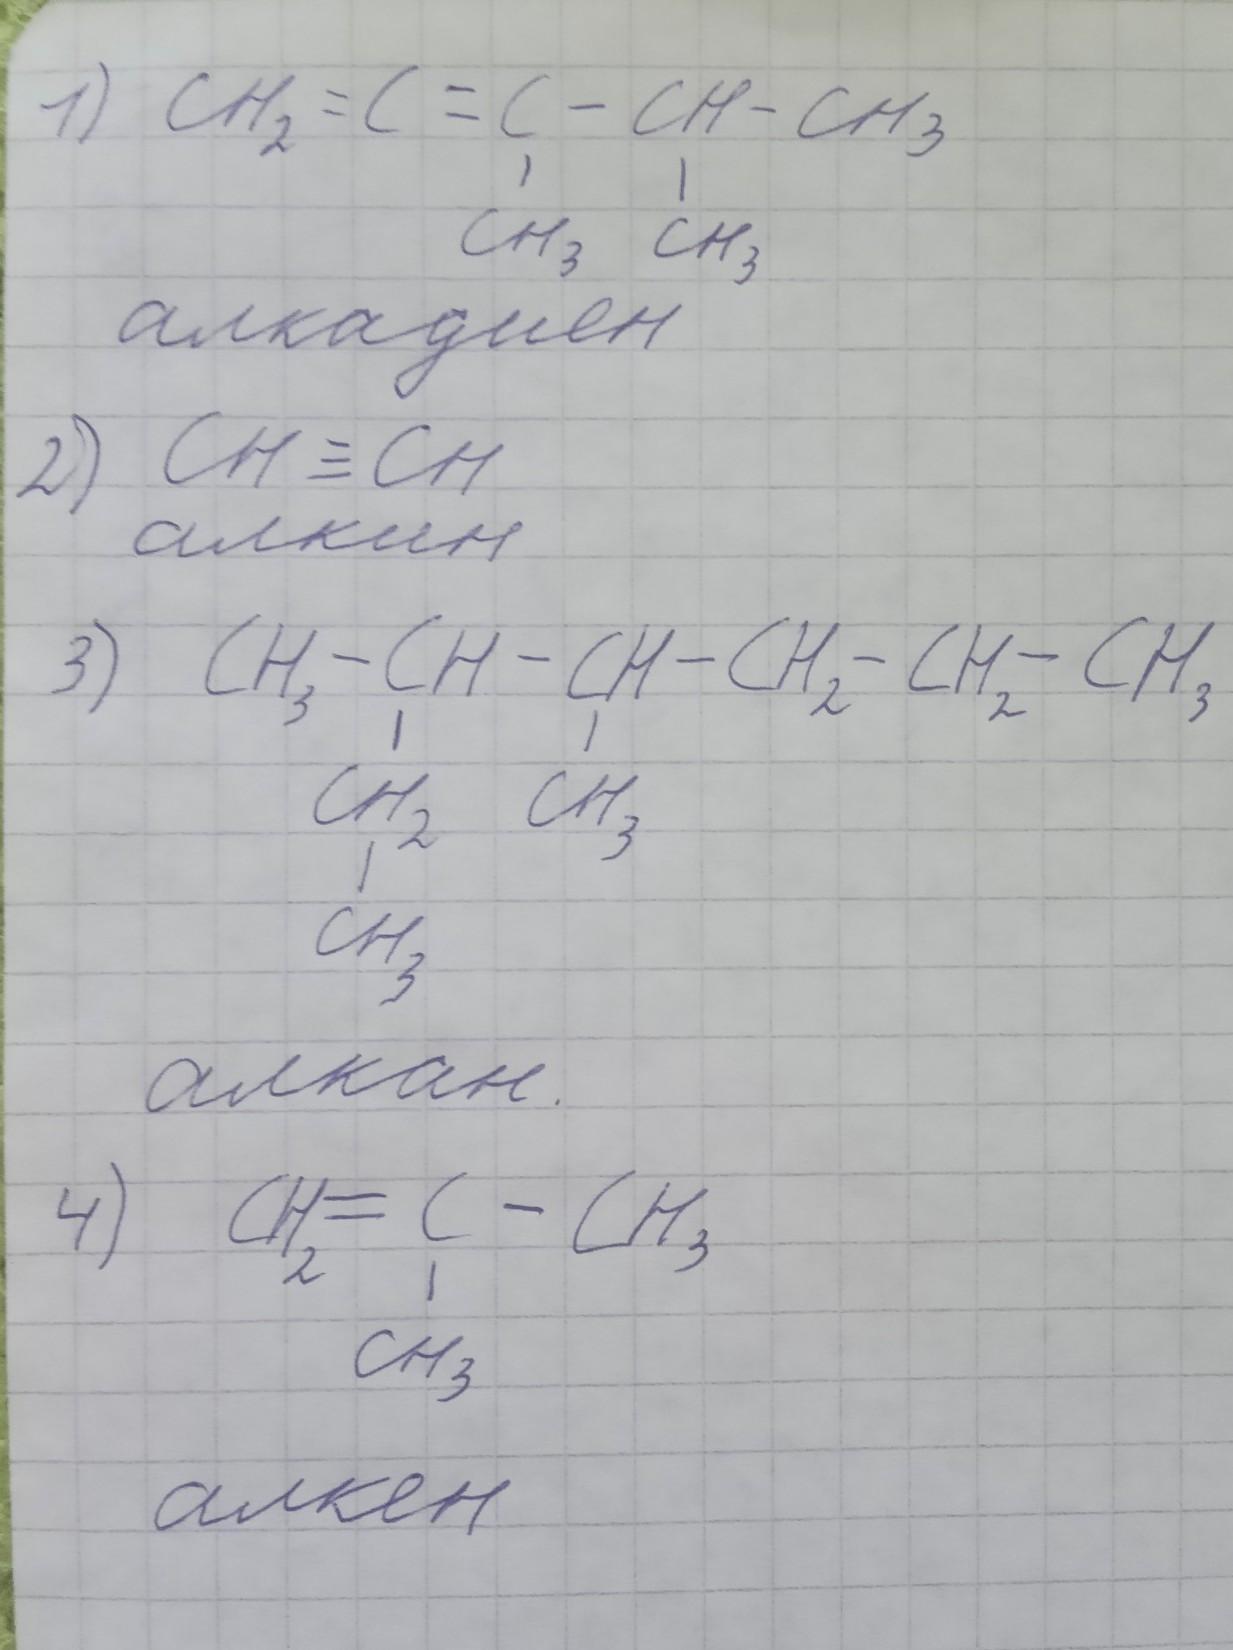 1) CH₂=C=C-CH-CH₃
| |
CH₃ CH₃
алкадиен
2) CH≡CH
алкин
3) CH₃-CH-CH-CH₂-CH₂-CH₃
| |
CH₂ CH₃
|
CH₃
алкан.
4) CH₂=C-CH₃
|
CH₃
алкен